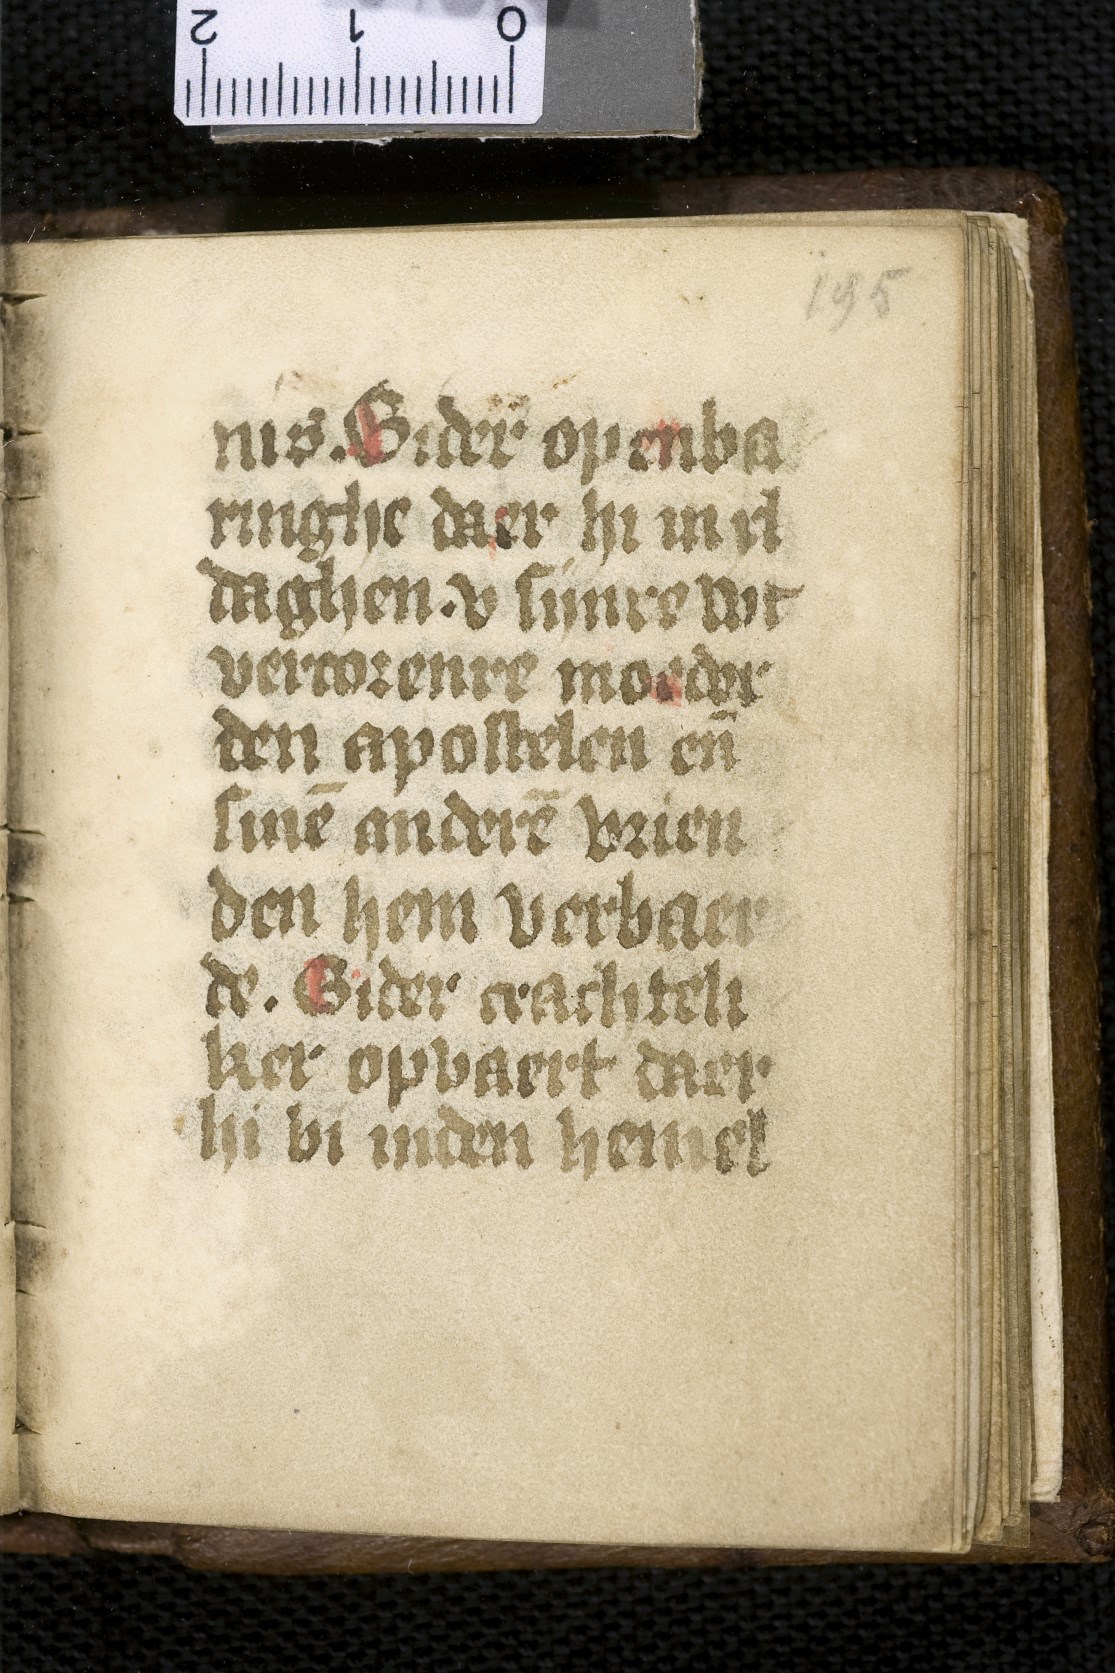 2 1 0
195
nis. Bider̄ openba
ringhe daer hi in xl
daghen. v sijnre wt
vercorenre moeder
den apostelen en̄
sinē anderē vrien
den hem verbaer
de. Bider crachteli
ker opvaert daer
hi vi inden hemel